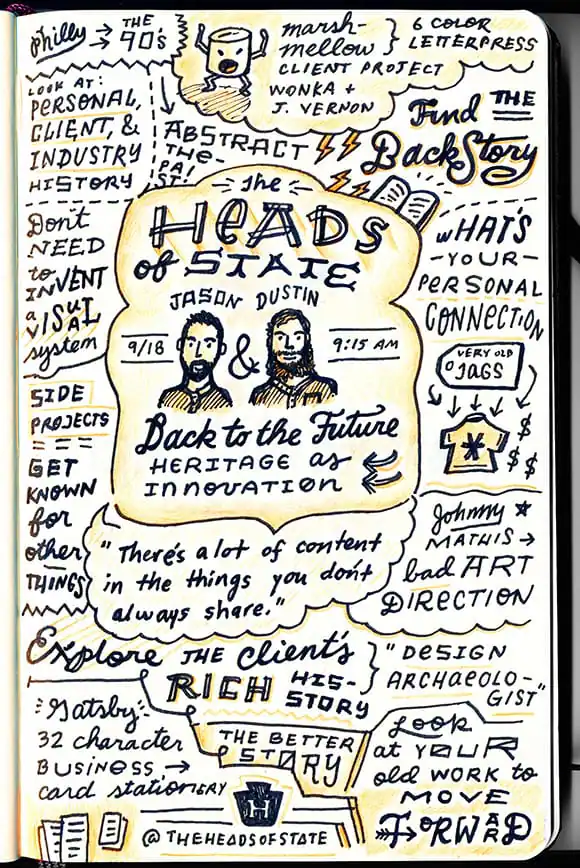 Philly → THE 90's
marsh-
mellow
CLIENT PROJECT
WONKA +
J. VERNON
6 COLOR
LETTERPRESS
LOOK AT:
PERSONAL,
CLIENT, &
INDUSTRY
HISTORY
ABSTRACT
THE
PAST
Find THE
BackStory
the
HEADS
of STATE
JASON DUSTIN
9/18 & 9:15 AM
Back to the Future
HERITAGE as
INNOVATION
Don't
NEED
to INVENT
a VISUAL
system
WHAT'S
-YOUR-
PERSONAL
CONNECTION
VERY OLD
JAGS
* $
$ $
SIDE
PROJECTS
GET
KNOWN
for
other
THINGS
Johnny ★
MATHIS →
bad ART
DIRECTION
"There's a lot of content
in the things you don't
always share."
Explore THE Client's
RICH HIS-
STORY
"DESIGN
ARCHAEOLO-
GIST"
Gatsby:
32 character
BUSINESS →
card stationERY
THE BETTER
STORY
Look
at YOUR
old WORK to
MOVE
FORWARD
H
@THEHEADSOFSTATE